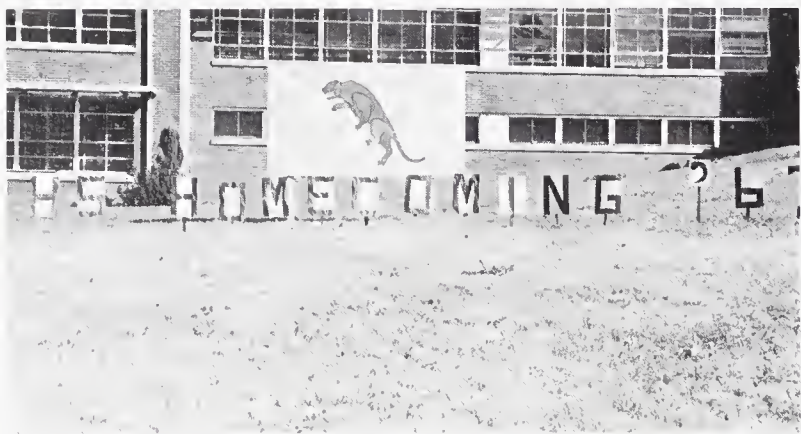 HS HOMECOMING '67